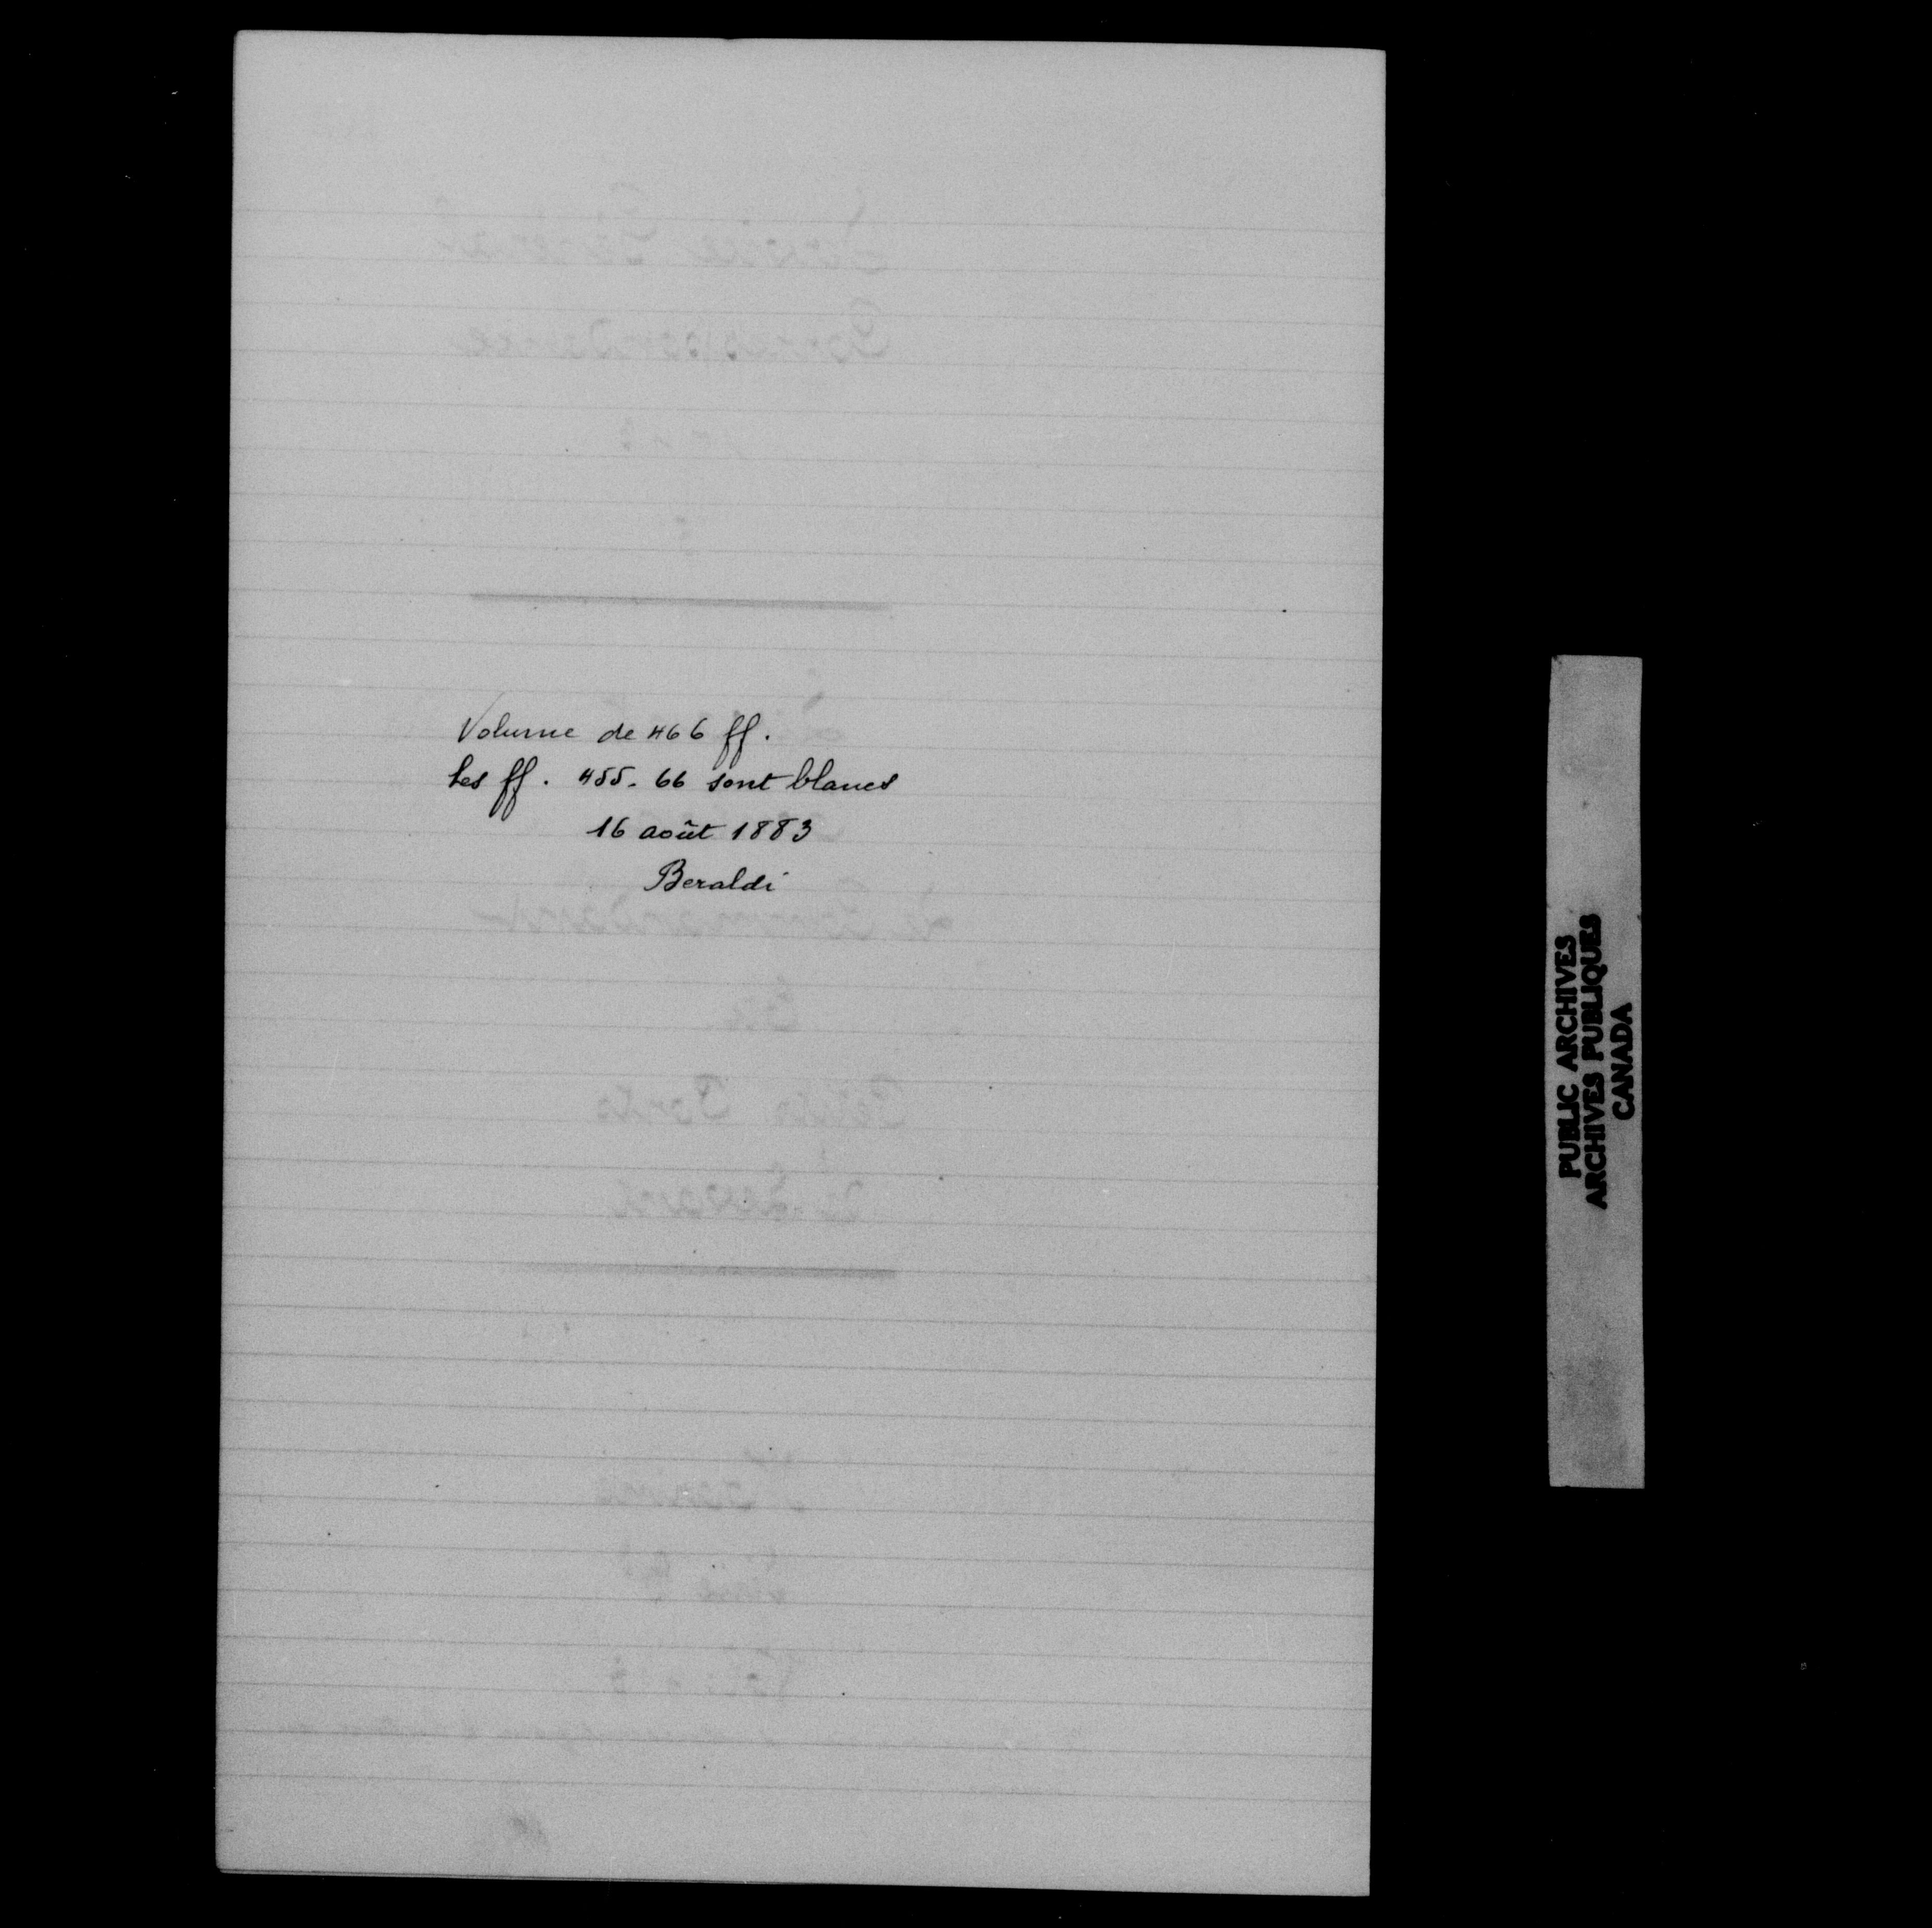 Volume de 466 ff.
Les ff. 455-66 sont blancs
16 août 1883
Beraldi
PUBLIC ARCHIVES
ARCHIVES PUBLIQUES
CANADA